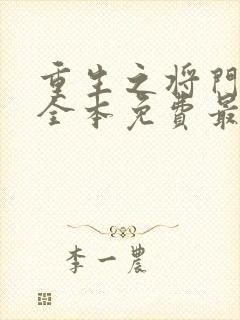 重生之将门
全本免费最
李一农